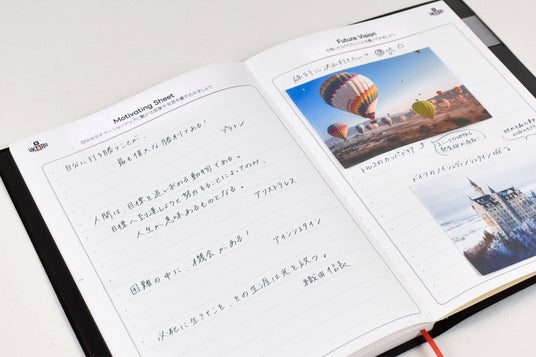 Motivating Sheet
自分に打ち勝つことが、
最も偉大な勝利である!
プラトン
人間は、目標を追い求める動物である。
目標へ到達しようと努力することによってのみ、
人生が意味あるものとなる。
アリストテレス
困難の中に、機会がある!
アインシュタイン
必死に生きてこそ、その生涯は光を放つ。
織田信長
Future Vision
トルコのカッパドキア
ドイツのノイシュヴァンシュタイン城